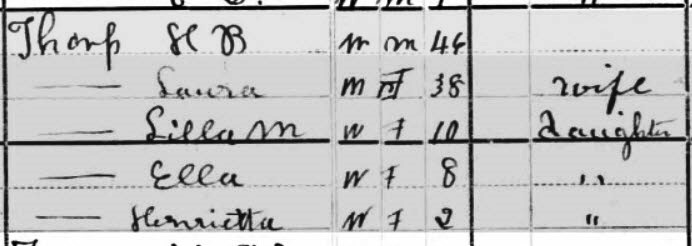 Thorp H B W M 46
— Laura M F 38 wife
— Lilla M W F 10 daughter
— Ella W F 8 "
— Henrietta W F 2 "